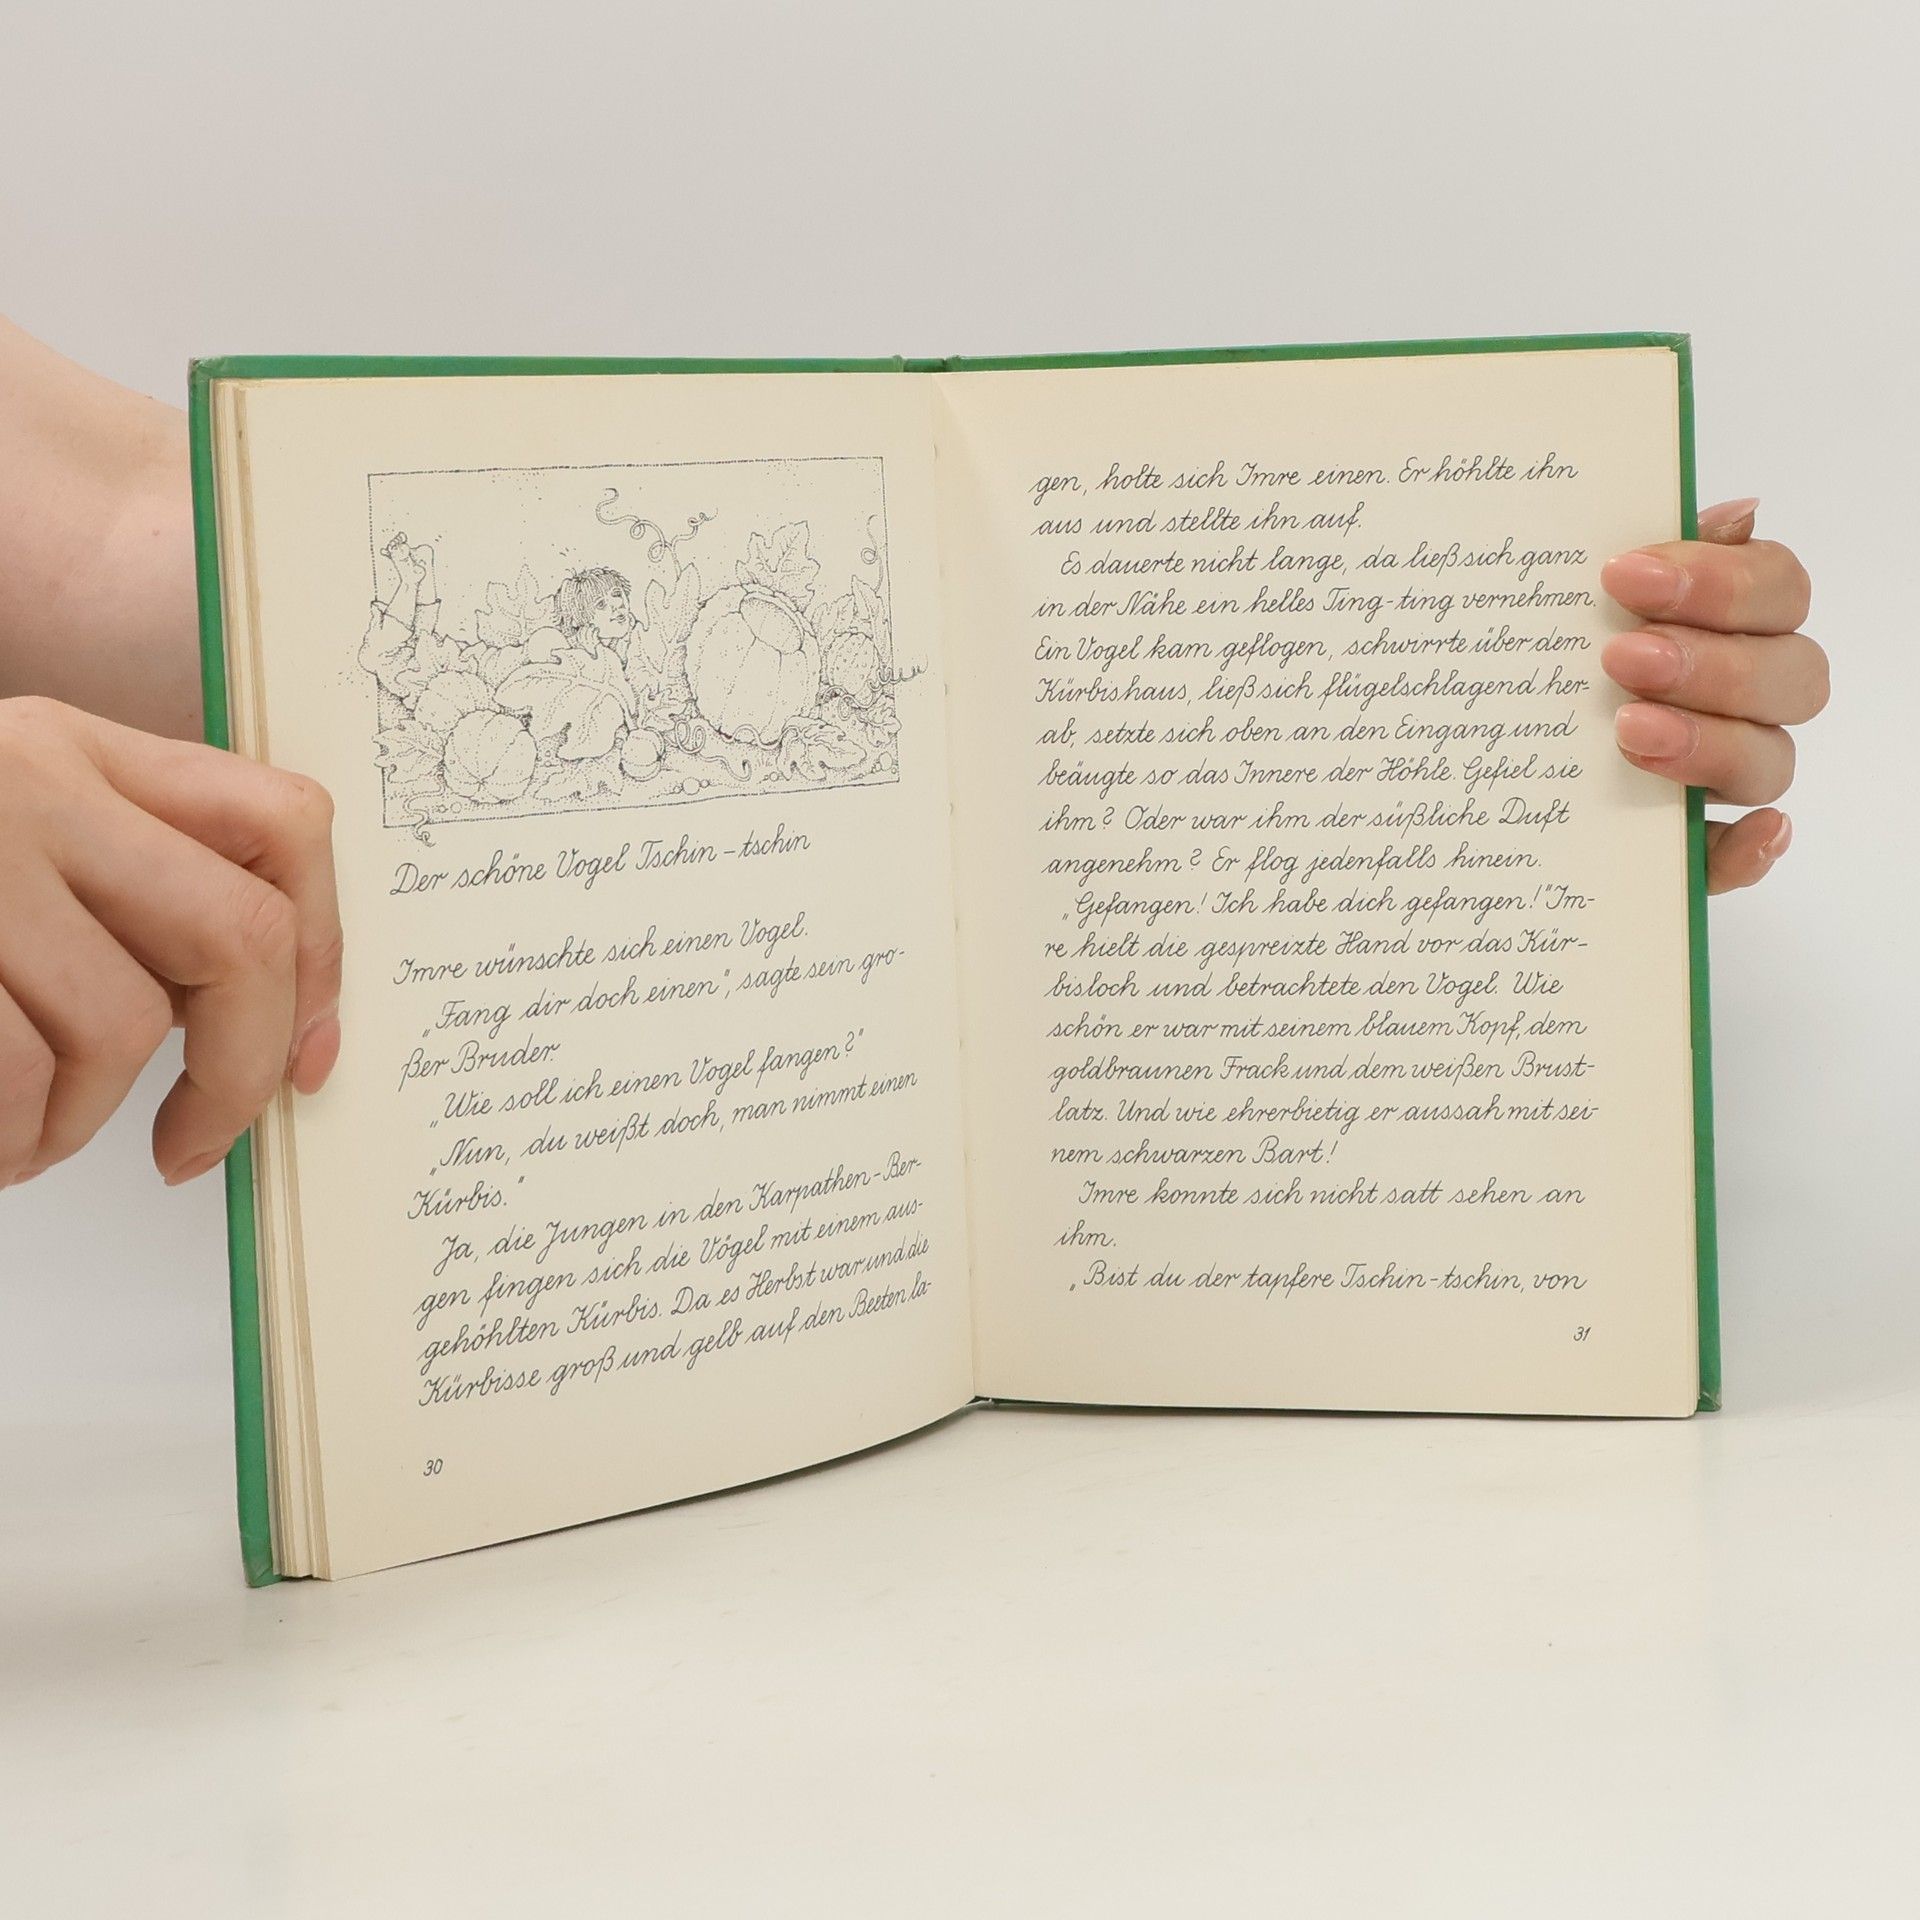 Der schöne Vogel Tschin-tschin
Imre wünschte sich einen Vogel.
„Fang dir doch einen", sagte sein gro-
ßer Bruder.
„Wie soll ich einen Vogel fangen?"
„Nun, du weißt doch, man nimmt einen
Kürbis."
Ja, die Jungen in den Karpathen-Ber-
gen fingen sich die Vögel mit einem aus-
gehöhlten Kürbis. Da es Herbst war und die
Kürbisse groß und gelb auf den Beeten la-
30
gen, holte sich Imre einen. Er höhlte ihn
aus und stellte ihn auf.
Es dauerte nicht lange, da ließ sich ganz
in der Nähe ein helles Ting-ting vernehmen.
Ein Vogel kam geflogen, schwirrte über dem
Kürbishaus, ließ sich flügelschlagend her-
ab, setzte sich oben an den Eingang und
beäugte so das Innere der Höhle. Gefiel sie
ihm? Oder war ihm der süßliche Duft
angenehm? Er flog jedenfalls hinein.
„Gefangen! Ich habe dich gefangen!" Im-
re hielt die gespreizte Hand vor das Kür-
bisloch und betrachtete den Vogel. Wie
schön er war mit seinem blauem Kopf, dem
goldbraunen Frack und dem weißen Brust-
latz. Und wie ehrerbietig er aussah mit sei-
nem schwarzen Bart!
Imre konnte sich nicht satt sehen an
ihm.
„Bist du der tapfere Tschin-tschin, von
31